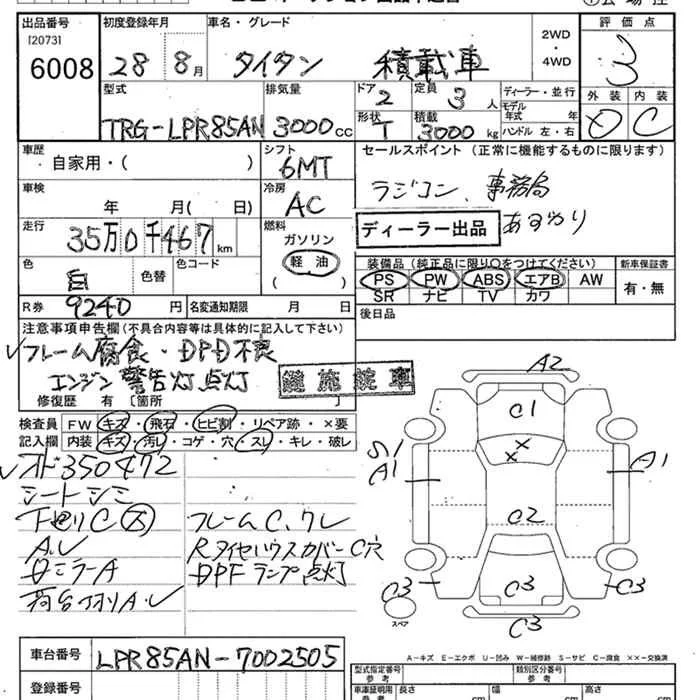 出品番号
[2073]
6008
初度登録年月
28 8月
車名・グレード
タイタン 積載車
2WD
・
4WD
評価点
3
外装 内装
D C
型式
TRG-LPR85AN
排気量
3000cc
ドア
2
形状
T
定員
3人
積載
3000kg
ディーラー・並行
モデル
年式 年
ハンドル 左・右
車歴
自家用・( )
シフト
6MT
セールスポイント (正常に機能するものに限ります)
ラジコン、事務局
あずかり
ディーラー出品
車検
年 月( 日)
冷房
AC
走行
35万0千467km
燃料
ガソリン
軽油
( )
色
白
色替
色コード
装備品 (純正品に限り○をつけてください)
PS PW ABS エアB AW
SR ナビ TV カワ
新車保証書
有・無
R券
9240円
名変通知期限 月 日
後日品
注意事項申告欄 (不具合内容等は具体的に記入して下さい)
フレーム腐食・DPD不良
エンジン警告灯点灯
修復歴 有 〔箇所 〕
検査員
記入欄
FW キズ・飛石・ヒビ割・リペア跡・×要
内装 キズ・汚レ・コゲ・穴・スレ・キレ・破レ
350472
シートシミ
A.V
フレームC、クレ
RタイヤハウスカバーC穴
DPFランプ点灯
A2
C1
××
S1
A1
A1
C2
C3
C3
C3
C3
スペア
A-キズ E-エクボ U-凹み W-補修跡 S-サビ C-腐食 ××-交換済
車台番号
LPR85AN-7002505
登録番号
型式指定番号
参考
類別区分番号
参考
車庫証明用
参考
長さ cm
幅 cm
高さ cm